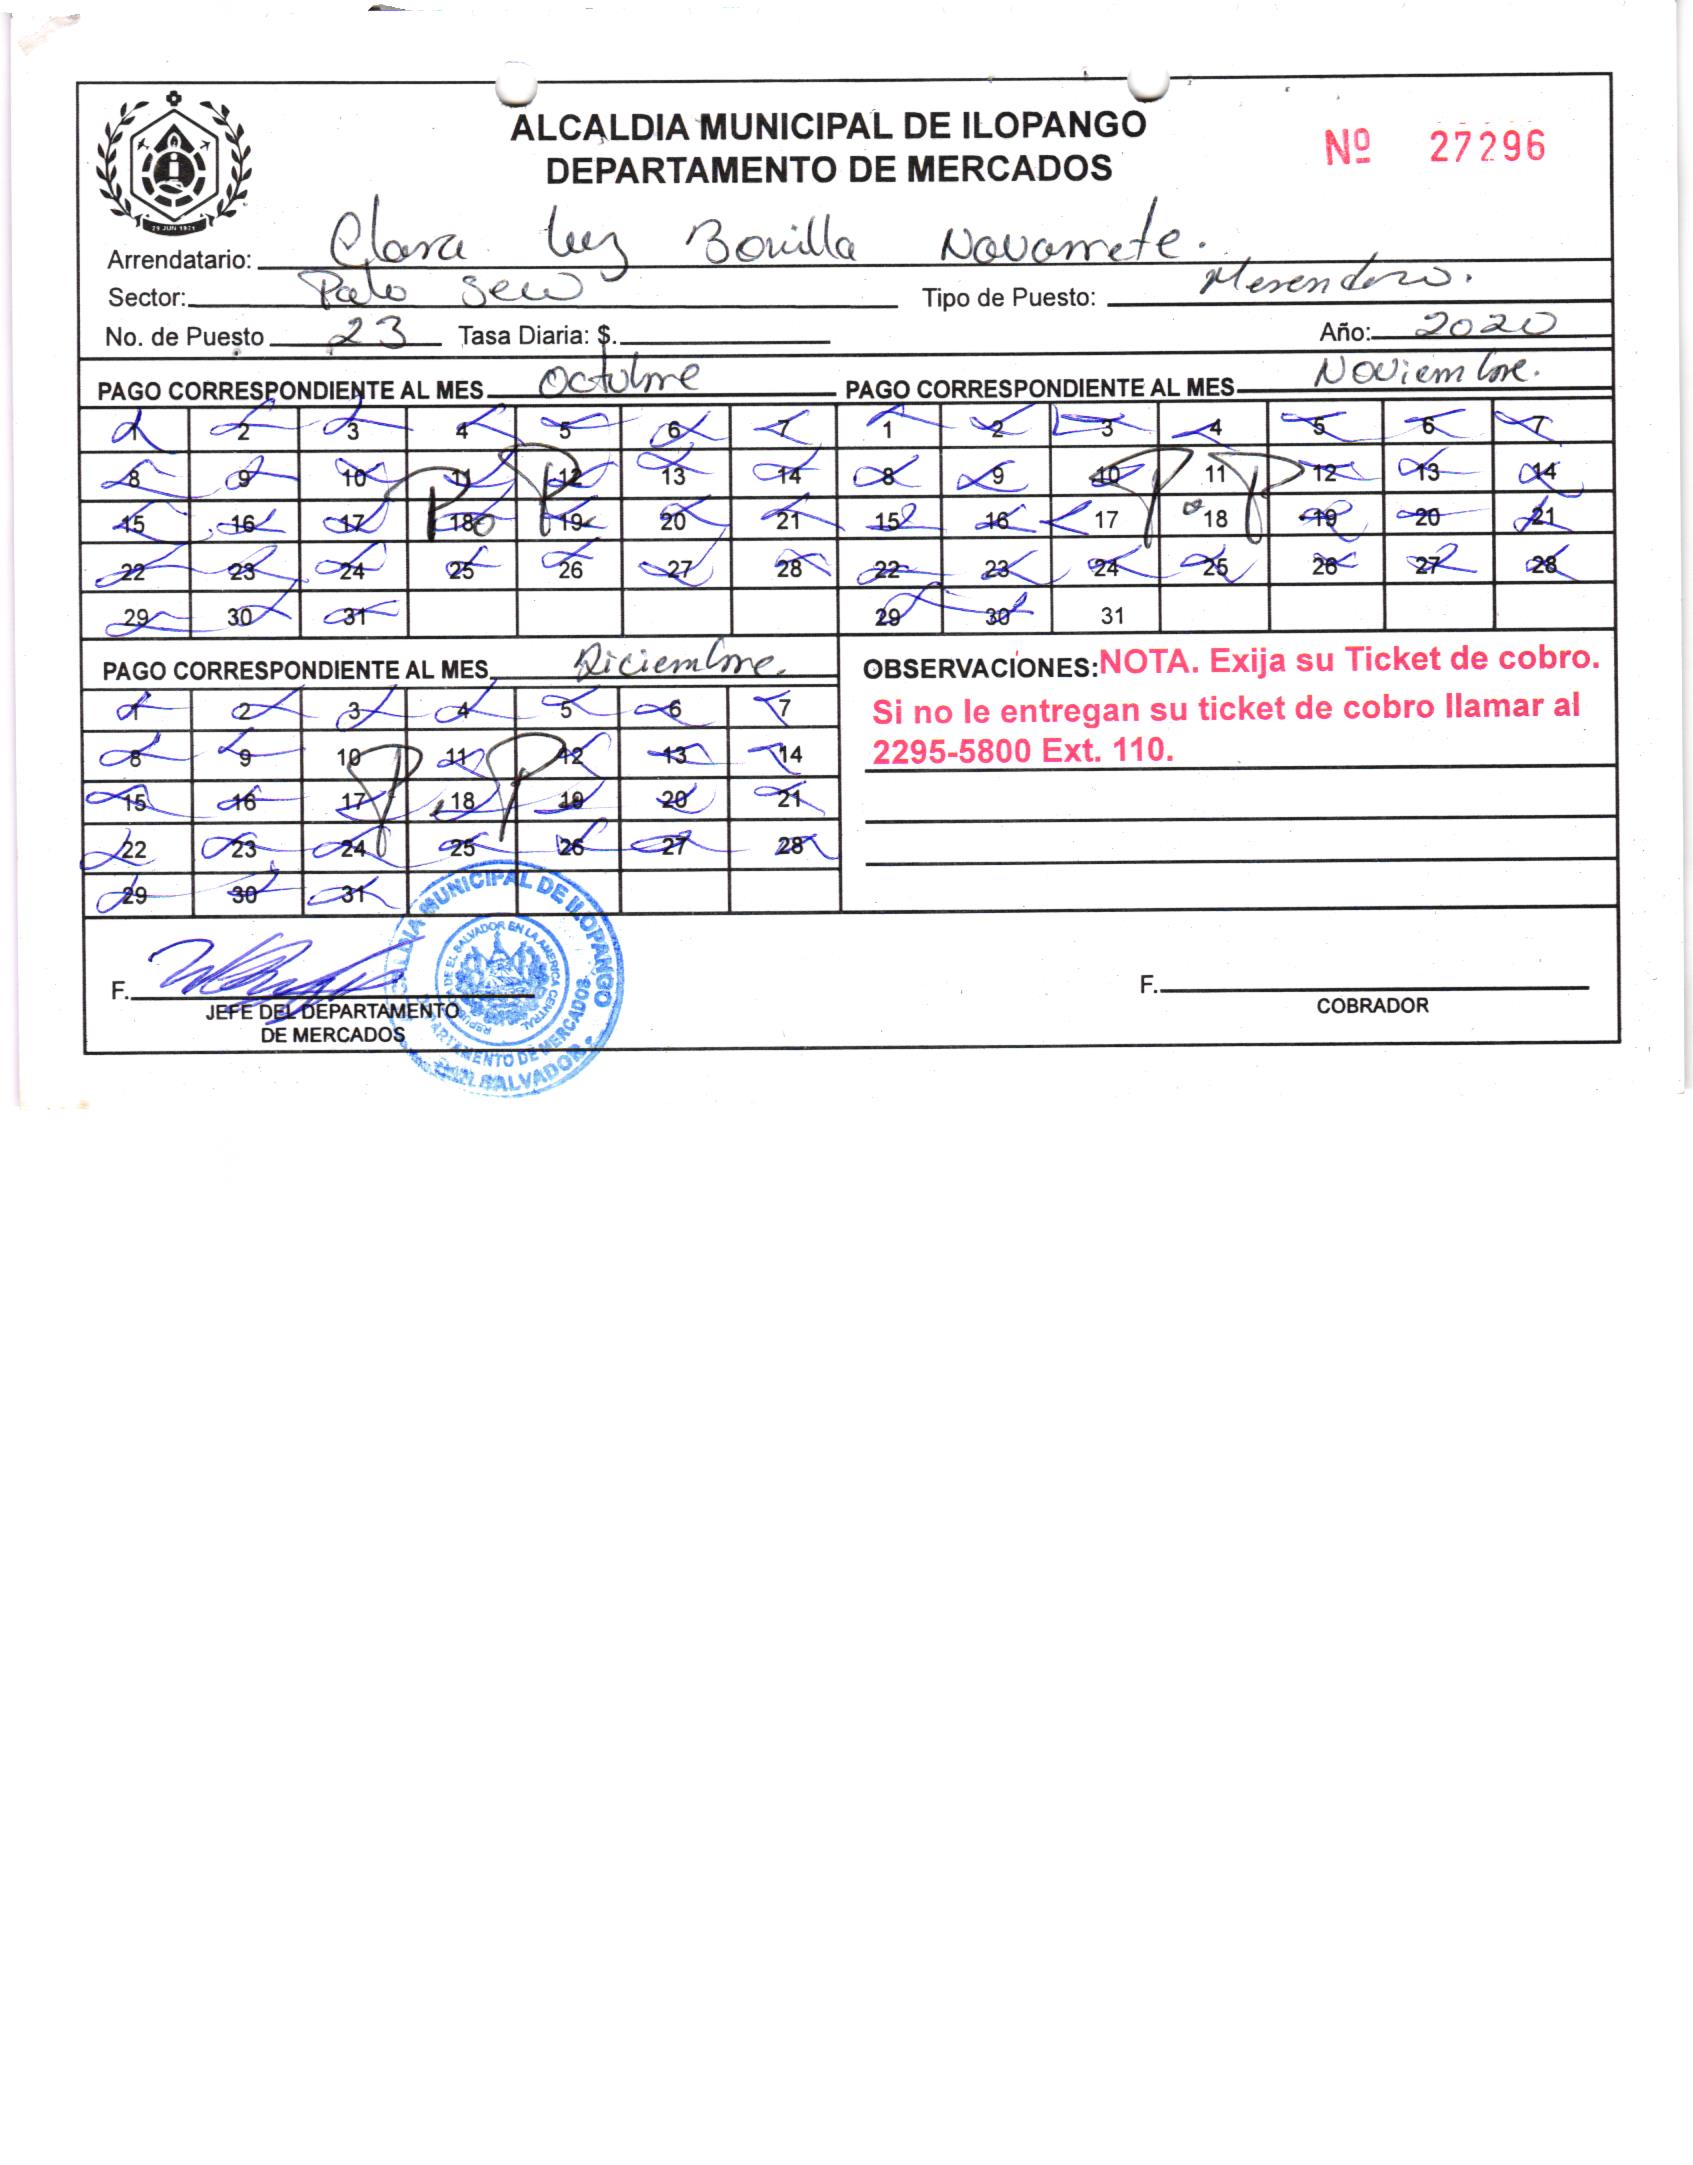 ALCALDIA MUNICIPAL DE ILOPANGO
DEPARTAMENTO DE MERCADOS
Nº 27296
29 JUN 1971
Arrendatario: Clara Luz Bonilla Navarrete.
Sector: Palo Seco Tipo de Puesto: Merendero.
No. de Puesto 23 Tasa Diaria: $. Año: 2020
PAGO CORRESPONDIENTE AL MES Octubre PAGO CORRESPONDIENTE AL MES Noviembre.
1 2 3 4 5 6 7 1 2 3 4 5 6 7
8 9 10 11 12 13 14 8 9 10 11 12 13 14
P.P P.P
15 16 17 18 19 20 21 15 16 17 18 19 20 21
22 23 24 25 26 27 28 22 23 24 25 26 27 28
29 30 31 29 30 31
PAGO CORRESPONDIENTE AL MES Diciembre.
1 2 3 4 5 6 7
8 9 10 11 12 13 14
P.P
15 16 17 18 19 20 21
22 23 24 25 26 27 28
29 30 31
OBSERVACIONES: NOTA. Exija su Ticket de cobro.
Si no le entregan su ticket de cobro llamar al
2295-5800 Ext. 110.
F.
JEFE DEL DEPARTAMENTO
DE MERCADOS
ALCALDIA MUNICIPAL DE ILOPANGO
REPUBLICA DE EL SALVADOR EN LA AMERICA CENTRAL
DEPARTAMENTO DE MERCADOS
EL SALVADOR
F.
COBRADOR